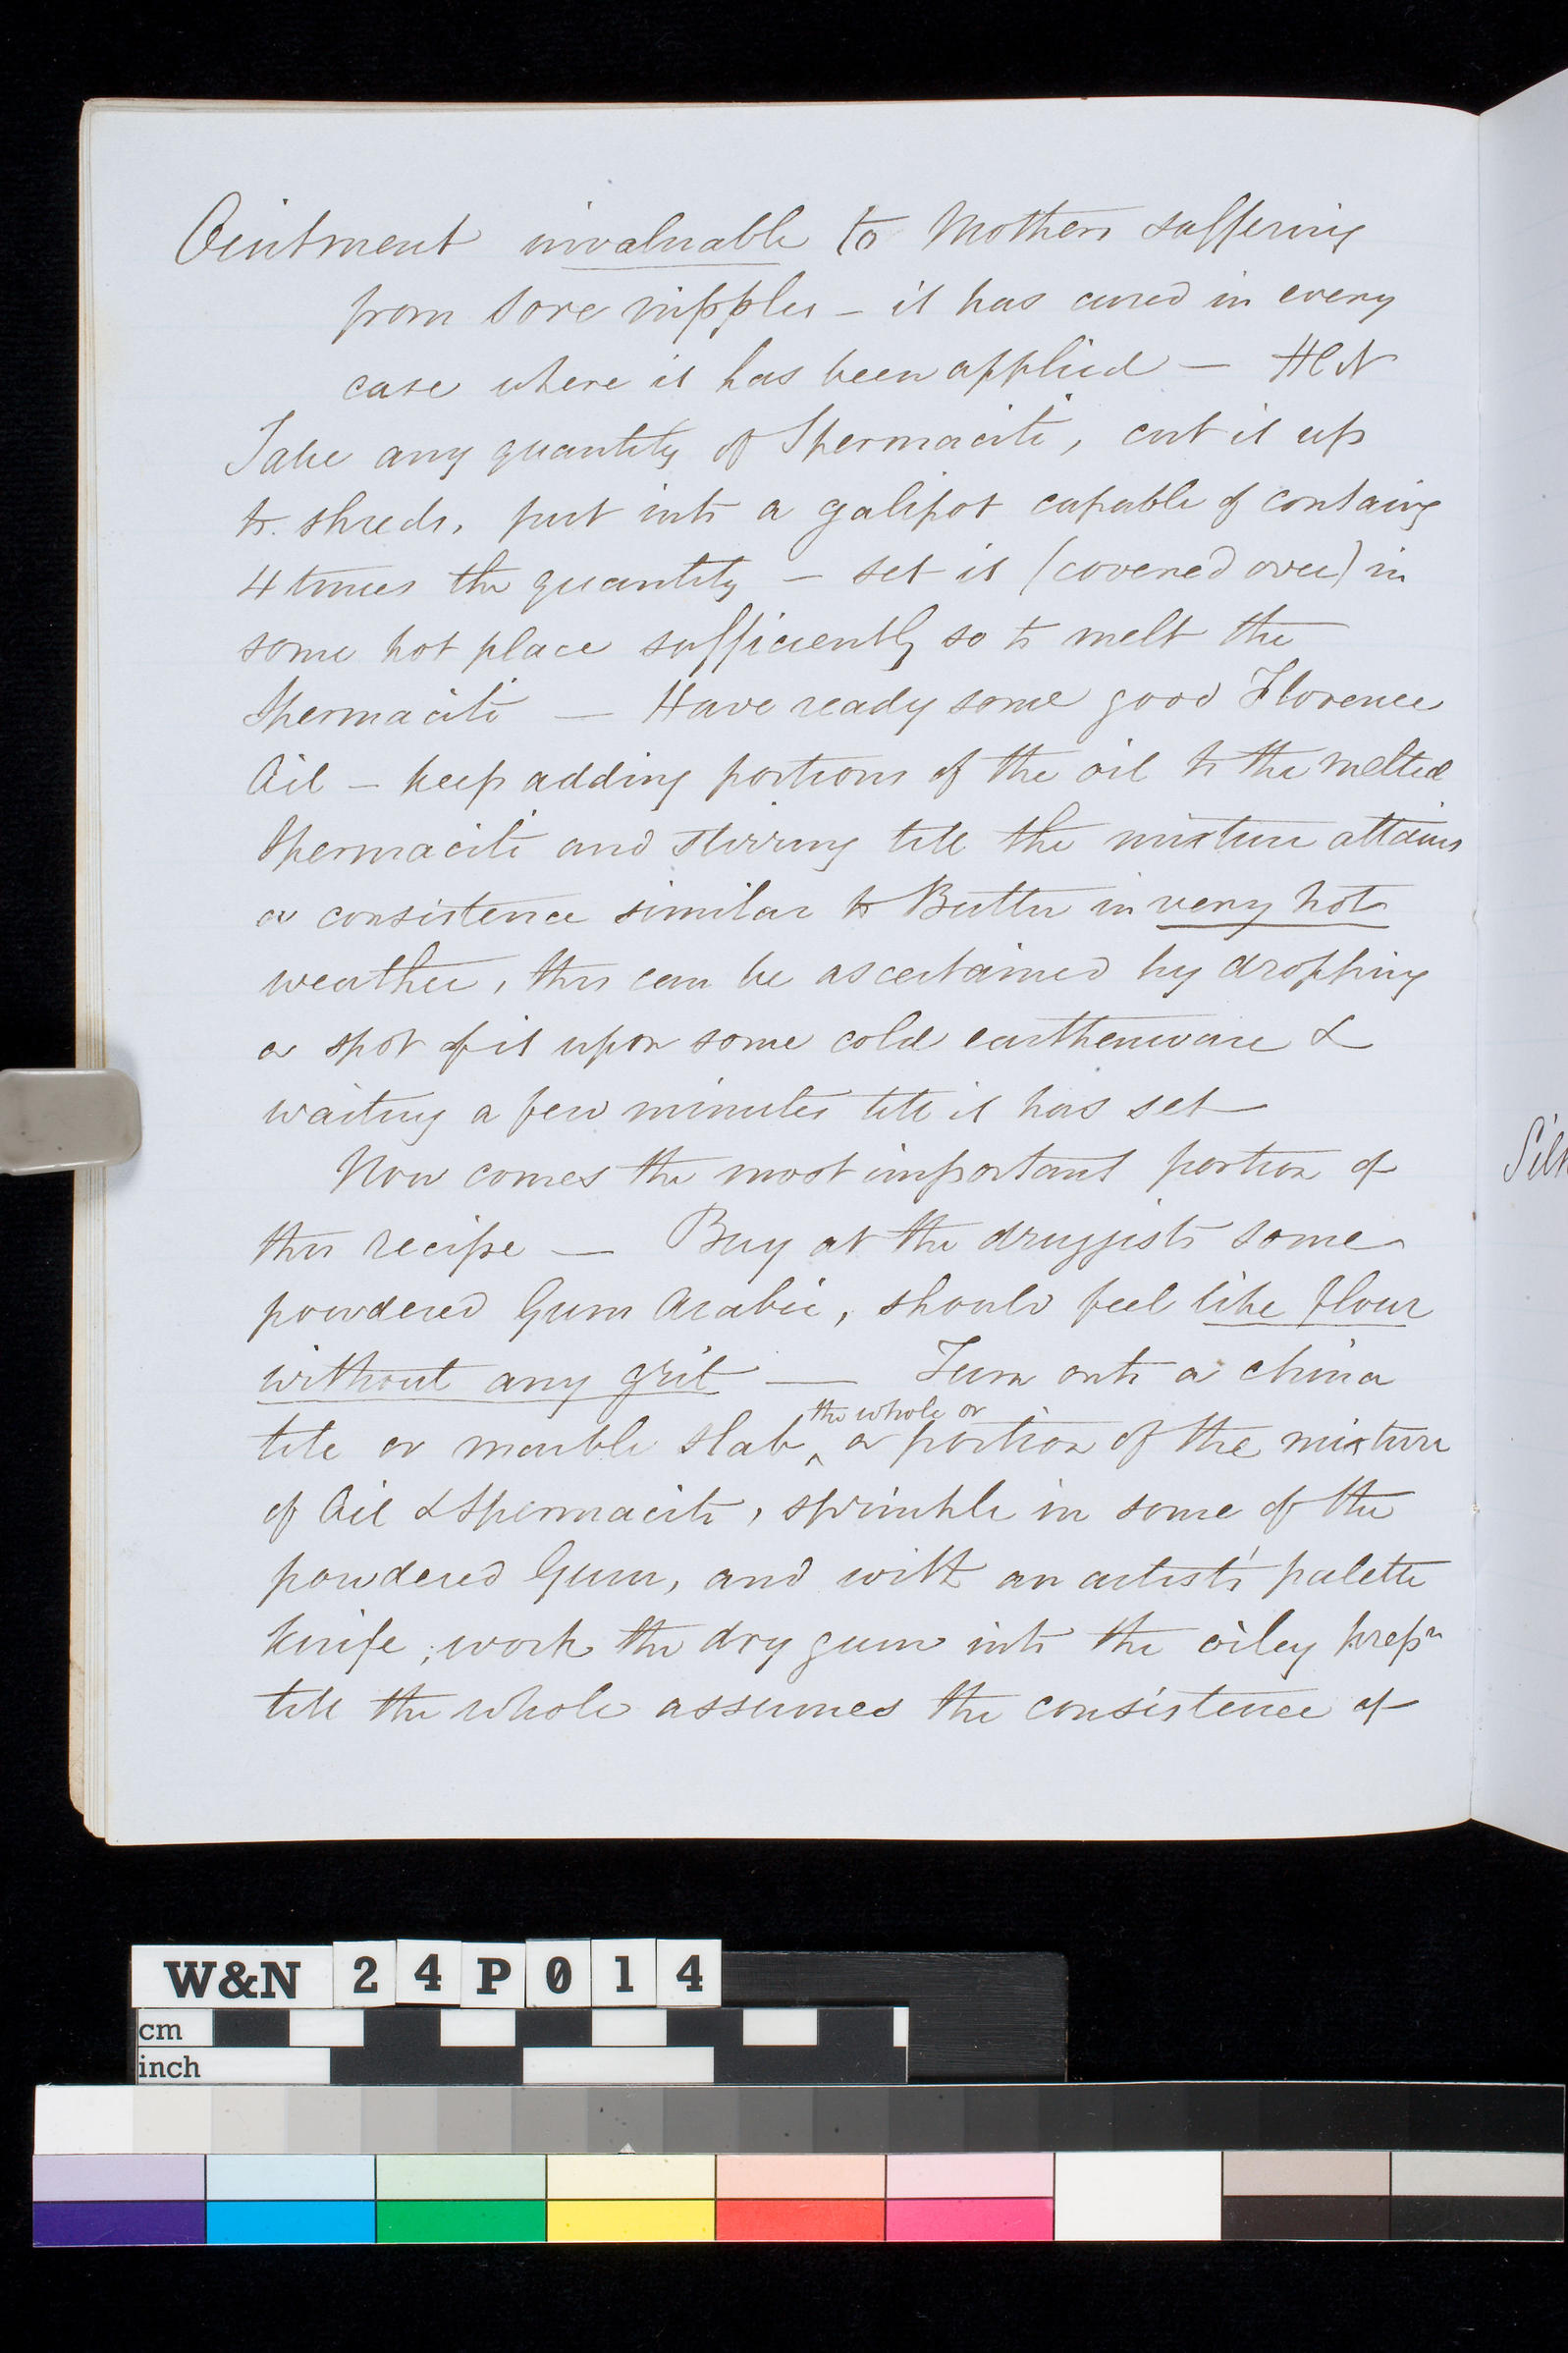 Ointment invaluable to Mothers suffering
from sore nipples – it has cured in every
case where it has been applied – HCN
Take any quantity of Spermaciti, cut it up
to shreds, put into a galipot capable of containg
4 times the quantity – set it (covered over) in
some hot place sufficiently so to melt the
Spermaciti – Have ready some good Florence
Oil – keep adding portions of the oil to the melted
Spermaciti and stirring till the mixture attains
a consistence similar to Butter in very hot
weather, this can be ascertained by dropping
a spot of it upon some cold earthenware &
waiting a few minutes till it has set
Now comes the most important portion of
this recipe – Buy at the druggists some
powdered Gum Arabic, should feel like flour
without any grit – Turn onto a china
the whole or
tile or marble slab ^ a portion of the mixture
of Oil & Spermaciti, sprinkle in some of the
powdered Gum, and with an artist's palette
knife, work the dry gum into the oiley prepn
till the whole assumes the consistence of
W&N 24P014
cm
inch